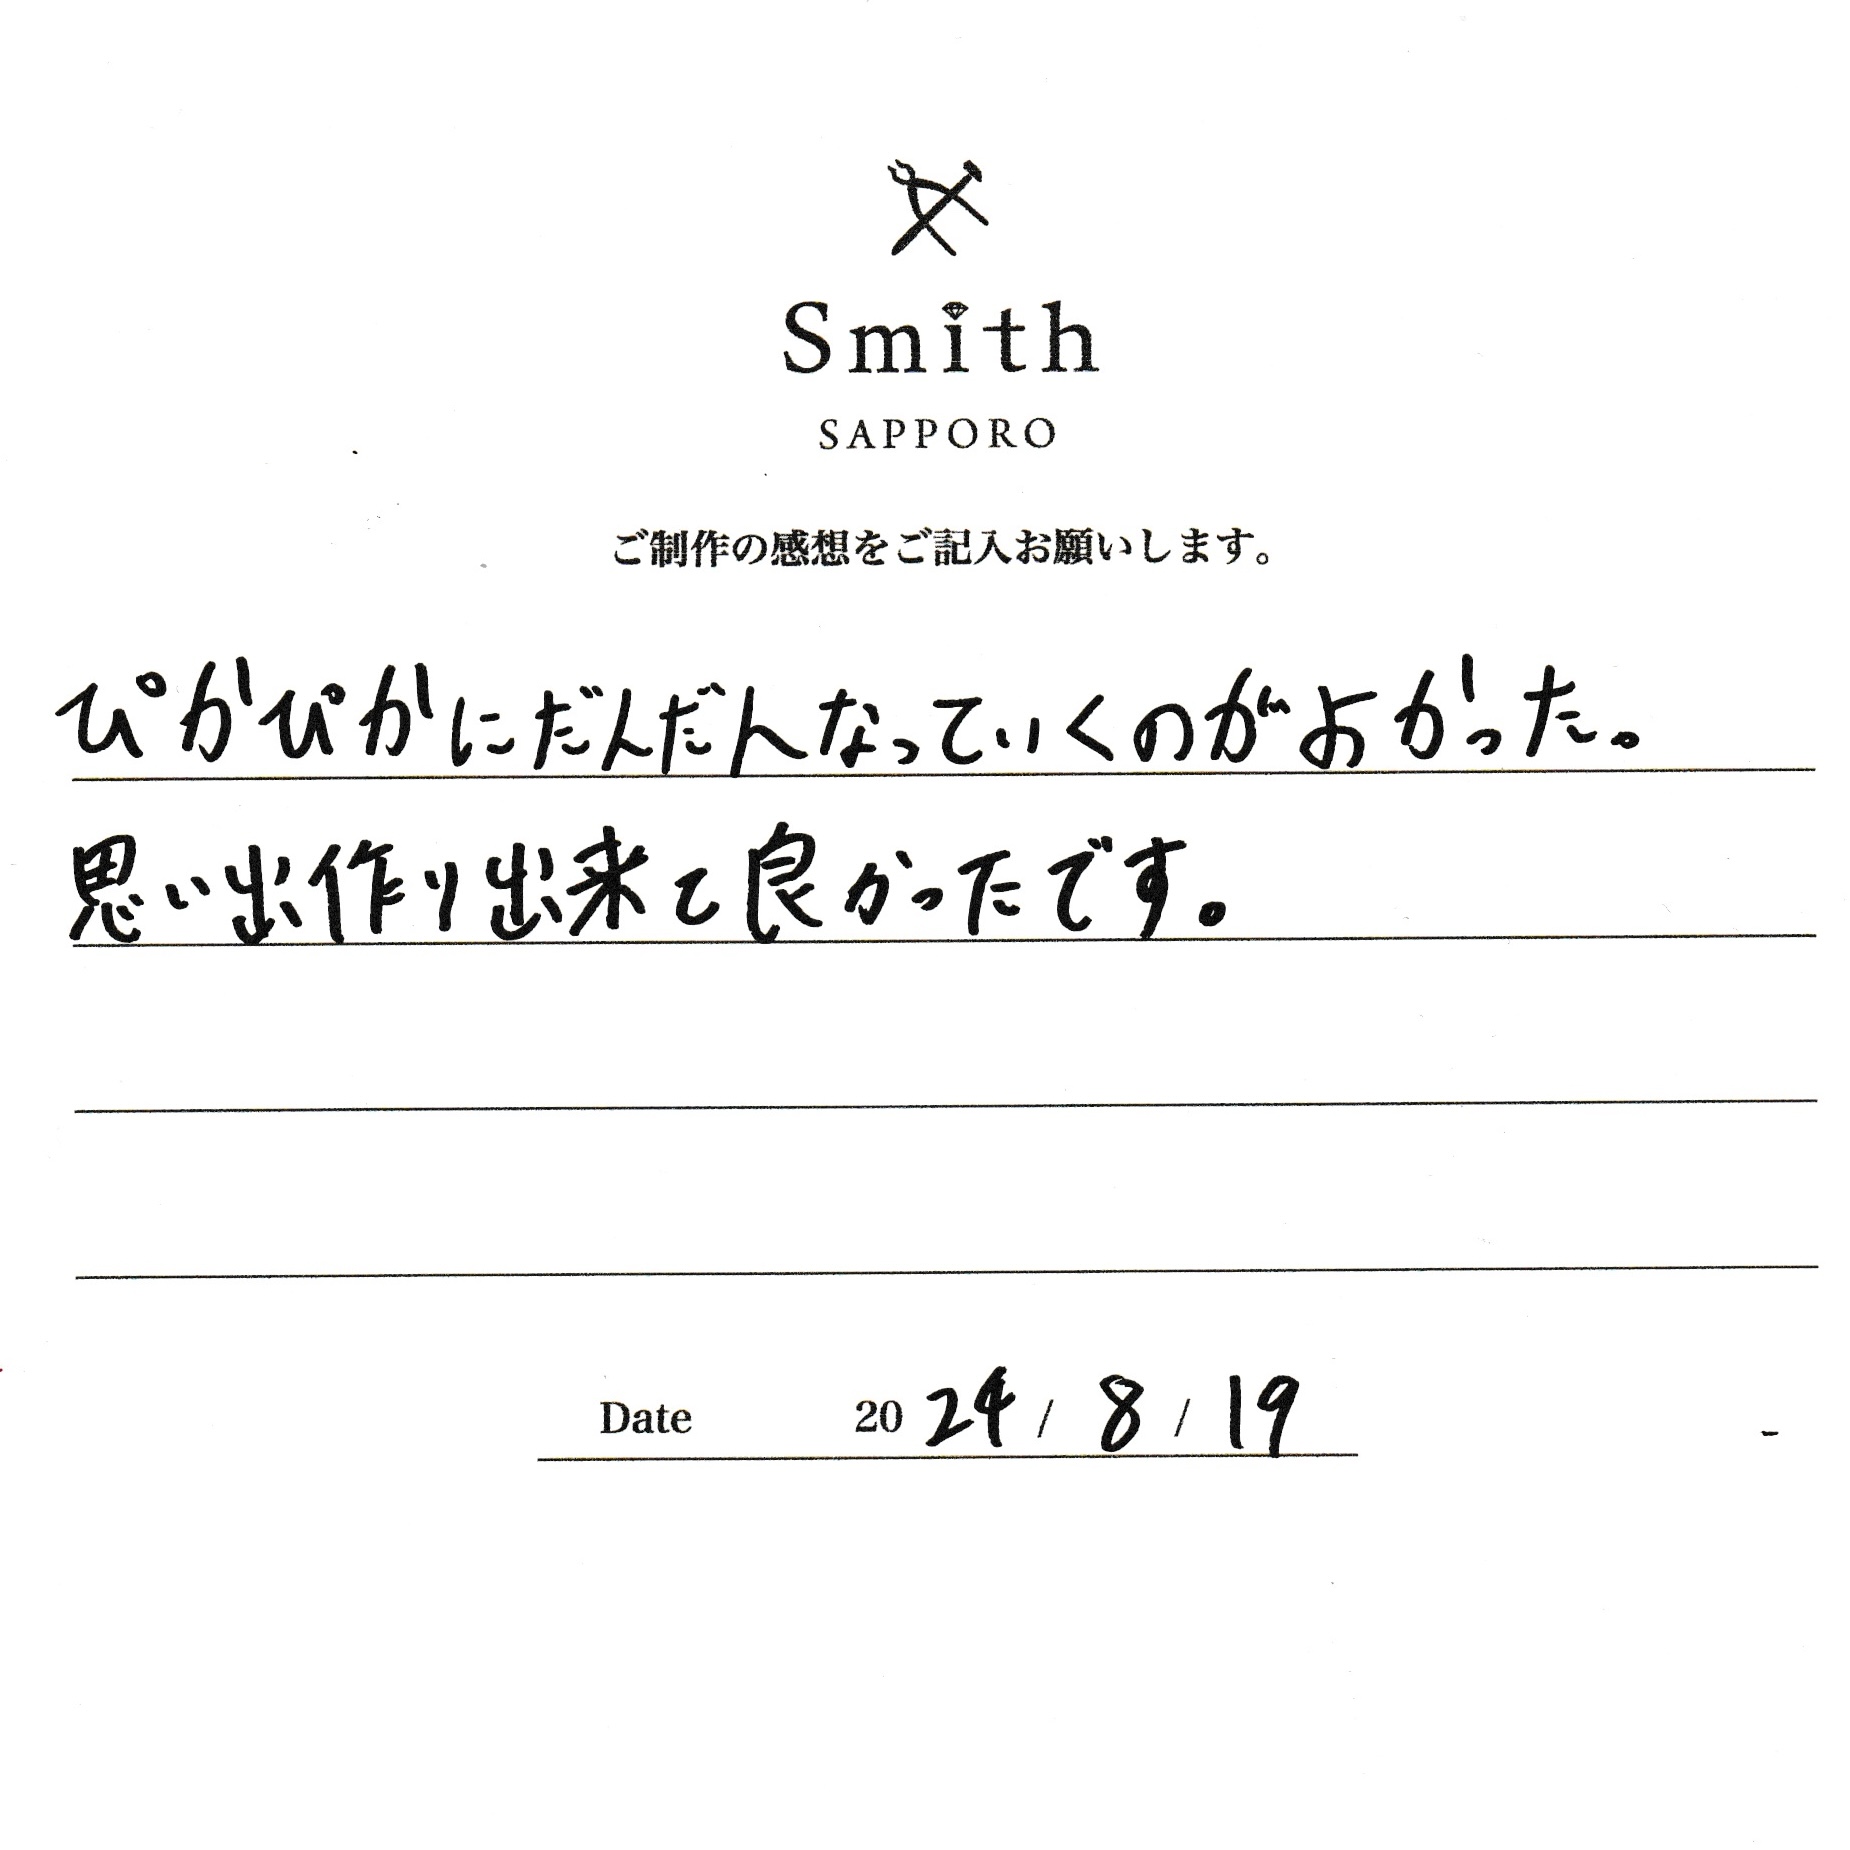 Smith
SAPPORO
ご制作の感想をご記入お願いします。
ぴかぴかにだんだんなっていくのがよかった。
思い出作り出来て良かったです。
Date 2024/8/19